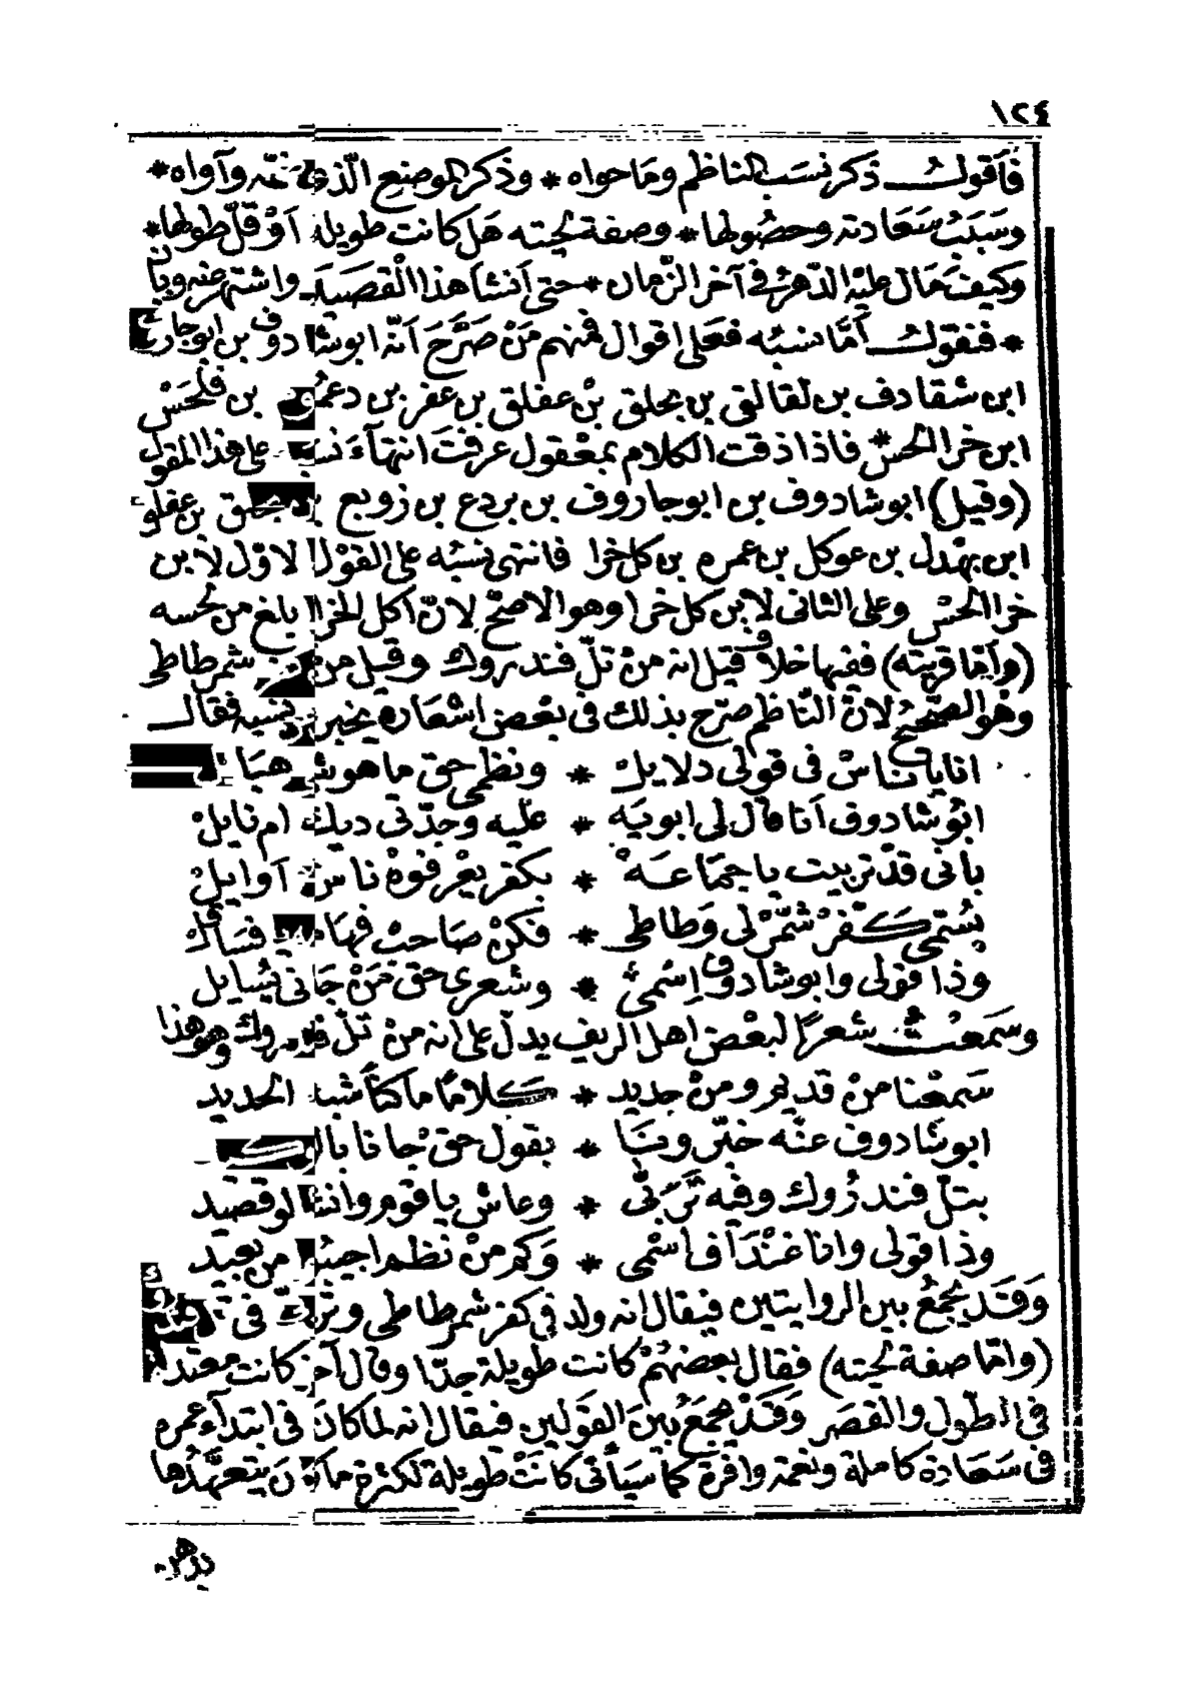 ١٢٤
فأقول ذكر نسب الناظم وما حواه * وذكر الموضع الّذى وآواه *
وسبب سعادته وحصولها * وصفة لحيته هل كانت طويلة أوْ قلّ طولها *
وكيف مال عليه الدّهر فى آخر الزّمان * حتى أنشا هذا القصيد واشتهر عنه وبان
* فنقول أمّا نسبه فعلى اقوال فمنهم منْ صرَّحَ أنّه ابو شادوف بن ابو جاروف
ابن شقادف بن لقالق بن بحلق بنْ عفلق بن عفر بن دعموم بن فلحس
ابن خرا الحس * فاذا ذقت الكلام بمعْقول عرفت انتهآء نسبه على هذا المقول
(وقيل) ابو شادوف بن ابو جاروف بن بردع بن زوبع بن بحلق بن عفلق
ابن بهْدل بن عوكل بن عمره بن كل خرا فانتهى نسبه على القوْل الاوّل لابن
خرا الحسْ وعلى الثانى لابن كل خرا وهو الاصحّ لانّ اكل الخرا ابلغ من لحسه
(وأمّا قريته) ففيها خلاف فقيل انه منْ تلّ فندروك وقيل من كفر شمرطاطى
وهو الصحيح لانّ النّاظم صرّح بذلك فى بعْض اشعاره يخبر نسبه فقال
انا يا ناسْ فى قولى دلايلْ * ونظمى حق ما هوشى هبا
ابُو شادوف أنا قال لى ابويَه * عليه وجدّتى ديك ام نايلْ
بانى قدْ تربيت يا جماعَهْ * بكفر يعْرفوهْ ناس أوايلْ
يُسَمى كَفْرْ شمّرْ لى وَطاطى * فكنْ صاحبْ فهامه فسائلْ
وذا قولى وابو شادوف اِسْمى * وشعرى حق منْ جانى يُسايل
وسَمعْت شعرًا لبعْض اهل الريف يدلّ على انه منْ تلّ فندروك وهو هذا
سَمعْنا منْ قديم ومنْ جديد * كلامًا ماكنًا شبه الحديد
ابو شادوف عنّه خبّر وبنَا * بقول حق جانا بال
بتلّ فندرُوك وفيه تَرَبّى * وعاش يا قوم وانشا لو قصيد
وذا قولى وانا غنْدَآف اسْمى * وكم منْ نظم اجيبُو من بعيد
وَقَد يُجْمَعُ بين الروايتين فيقال انه ولد فى كفر شمرطاطى وتربّى فى تل فندروك
(وامّا صفة لحيته) فقال بعضهُمْ كانت طويلة جدّا وقال آخر كانت معتدلة
فى الطّول والقصَر وَقَدْ يجْمَعُ بينَ القَولين فيقال انه لما كانَ فى ابتدآء عمره
فى سَعادة كاملة ونعْمة وافرة كما سيأتى كانَتْ طويلة لكثرة ما كانَ يتعهَّدُها
بدهن